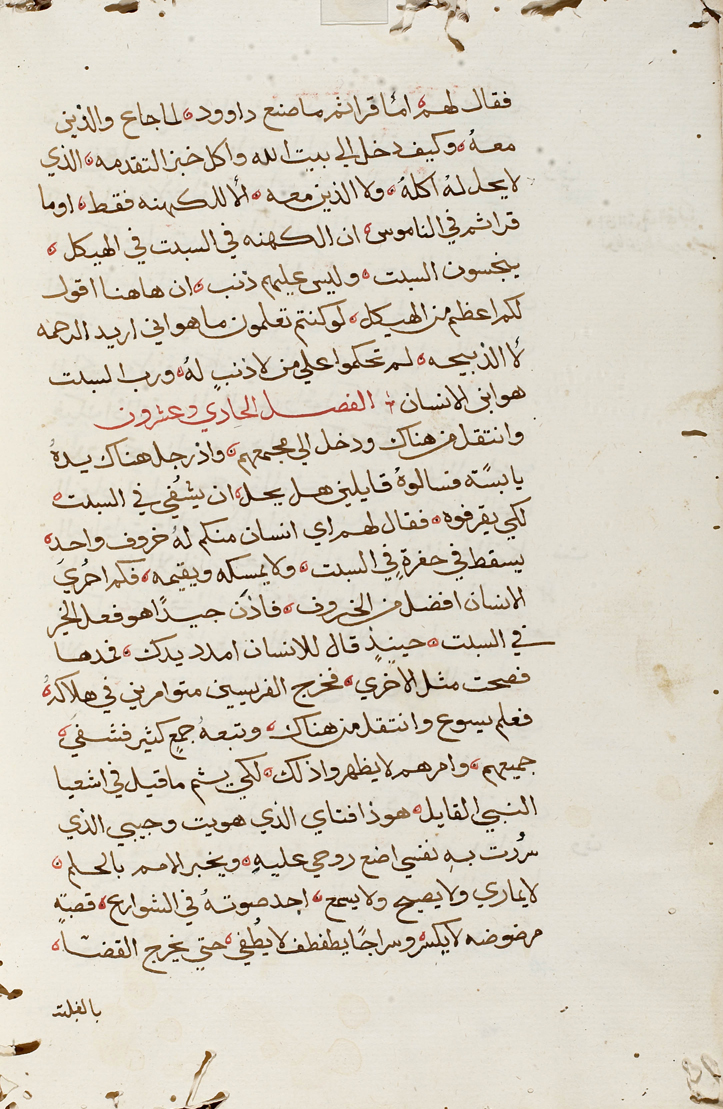 فقال لهم اما قراتم ما صنع داوود لما جاع والذين
معه وكيف دخل الي بيت الله واكل خبز التقدمه الذي
لا يحل لهُ اكلهُ ولا الذين معه الا للكهنه فقط اوما
قراتم في الناموس ان الكهنه في السبت في الهيكل
ينجسون السبت وليس عليهم ذنب ان هاهنا اقول
لكم اعظم من الهيكل لو كنتم تعلمون ما هو اني اريد الرحمه
لا الذبيحه لم تحكموا علي من لا ذنب لهُ ورب السبت
هو ابن الانسان الفصل الحادي وعشرون
وانتقل من هناك ودخل الي مجمعهم واذ رجل هناك يدهُ
يابسًه فسالوهُ قايلين هل يحل ان يشفي في السبت
لكي يقرفوه فقال لهم اي انسان منكم لهُ خروف واحد
يسقط في حفرةٍ في السبت ولا يمسكه ويقيمه فكم احري
الانسان افضل من الخروف فاذن جيدًا هو فعل الخير
في السبت حينيذٍ قال للانسان امدد يدك فمدها
فصحت مثل الاخري فخرج الفريسين متوامرين في هلاكهُ
فعلم يسوع وانتقل من هناك وتبعهُ جمع كثير فشفي
جميعهم وامرهم لا يظهروا ذلك لكي يتم ما قيل في اشعيا
النبي القايل هوذا فتاي الذي هويت وحبيبي الذي
سُردت بهِ نفسي اضع روحي عليهِ ويخبر الامم بالحلم
لا يماري ولا يصيح ولا يسمع احد صوتهُ في الشوارع قصبةٍ
مرضوضه لا يكسر وسراجًا يطفطف لا يُطفي حتي يخرج القضا
بالغلبه